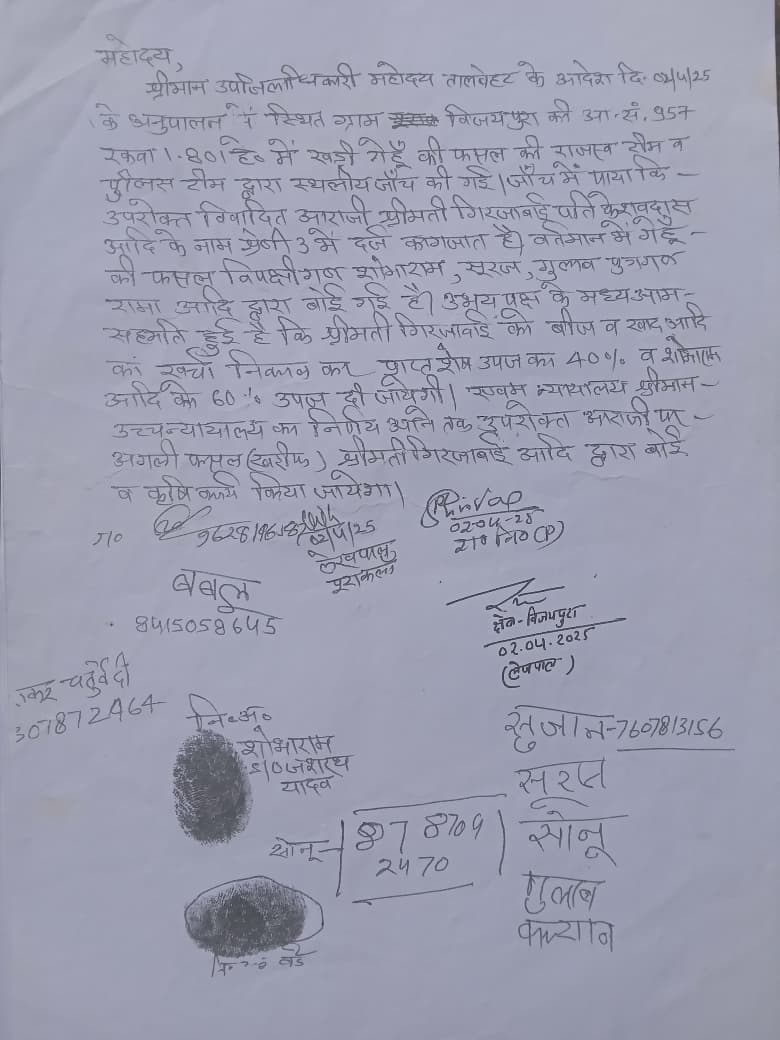 महोदय,
श्रीमान उपजिलाधिकारी महोदय तालबेहट के आदेश दि. 02/4/25
के अनुपालन में स्थित ग्राम विजयपुरा की आ.सं. 957
रकवा 1.801हे० में खड़ी गेहूँ की फसल की राजस्व टीम व
पुलिस टीम द्वारा स्थलीय जाँच की गई। जाँच में पाया कि -
उपरोक्त विवादित आराजी श्रीमती गिरजाबाई पति केशवदास
आदि के नाम श्रेणी 3 में दर्ज कागजात है। वर्तमान में गेहूँ -
की फसल विपक्षीगण शोभाराम, सूरज, गुलाव पुत्रगण
रामा आदि द्वारा बोई गई है। उभय पक्ष के मध्य आम -
सहमति हुई है कि श्रीमती गिरजाबाई को बीज व खाद आदि
का खर्चा निकाल कर प्राप्त शेष उपज का 40% व शोभाराम
आदि को 60% उपज दी जायेगी। एवम न्यायालय श्रीमान -
उच्चन्यायालय का निर्णय आने तक उपरोक्त आराजी पर -
अगली फसल (खरीफ) श्रीमती गिरजाबाई आदि द्वारा बोई
व कृषि कार्य किया जायेगा।
02/4/25
लेखपाल
पूराकलां
02-04-25
रा० नि० (P)
बबलू
8415058645
क्षेत्र-विजयपुरा
02.04.2025
(लेखपाल)
चतुर्वेदी
307872464
नि०अ०
शोभाराम
S/O जशरथ
यादव
सुजान-7607813156
सूरज
सोनू - 87 8709
2470
सोनू
गुलाब
कल्यान